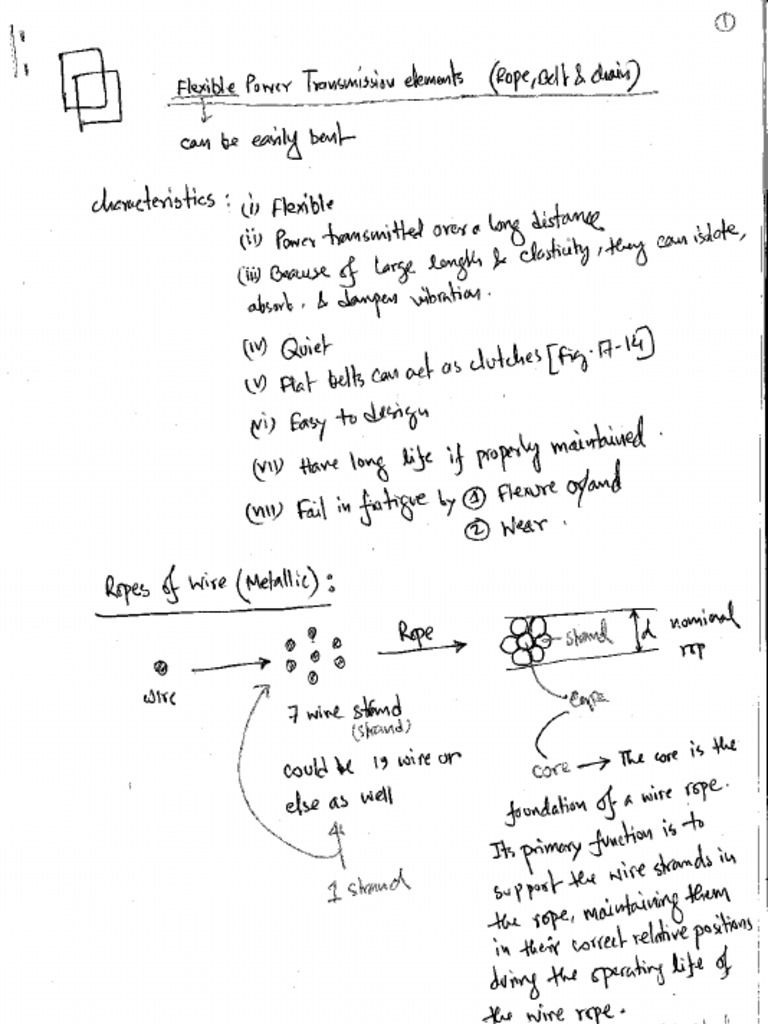 1
Flexible Power Transmission elements (Rope, Belt & chain)
can be easily bent
characteristics : (i) Flexible
(ii) Power transmitted over a long distance
(iii) Because of large length & elasticity, they can isolate,
absorb, & dampen vibration.
(iv) Quiet
(v) Flat belts can act as clutches [Fig. 17-14]
(vi) Easy to design
(vii) Have long life if properly maintained.
(viii) Fail in fatigue by ① Flexure or/and
② Wear.
Ropes of wire (Metallic) :
wire
Rope
strand
d
nominal
7 wire strand
(strand)
could be 19 wire or
else as well
1 strand
core
core → The core is the
foundation of a wire rope.
Its primary function is to
support the wire strands in
the rope, maintaining them
in their correct relative positions
during the operating life of
the wire rope.